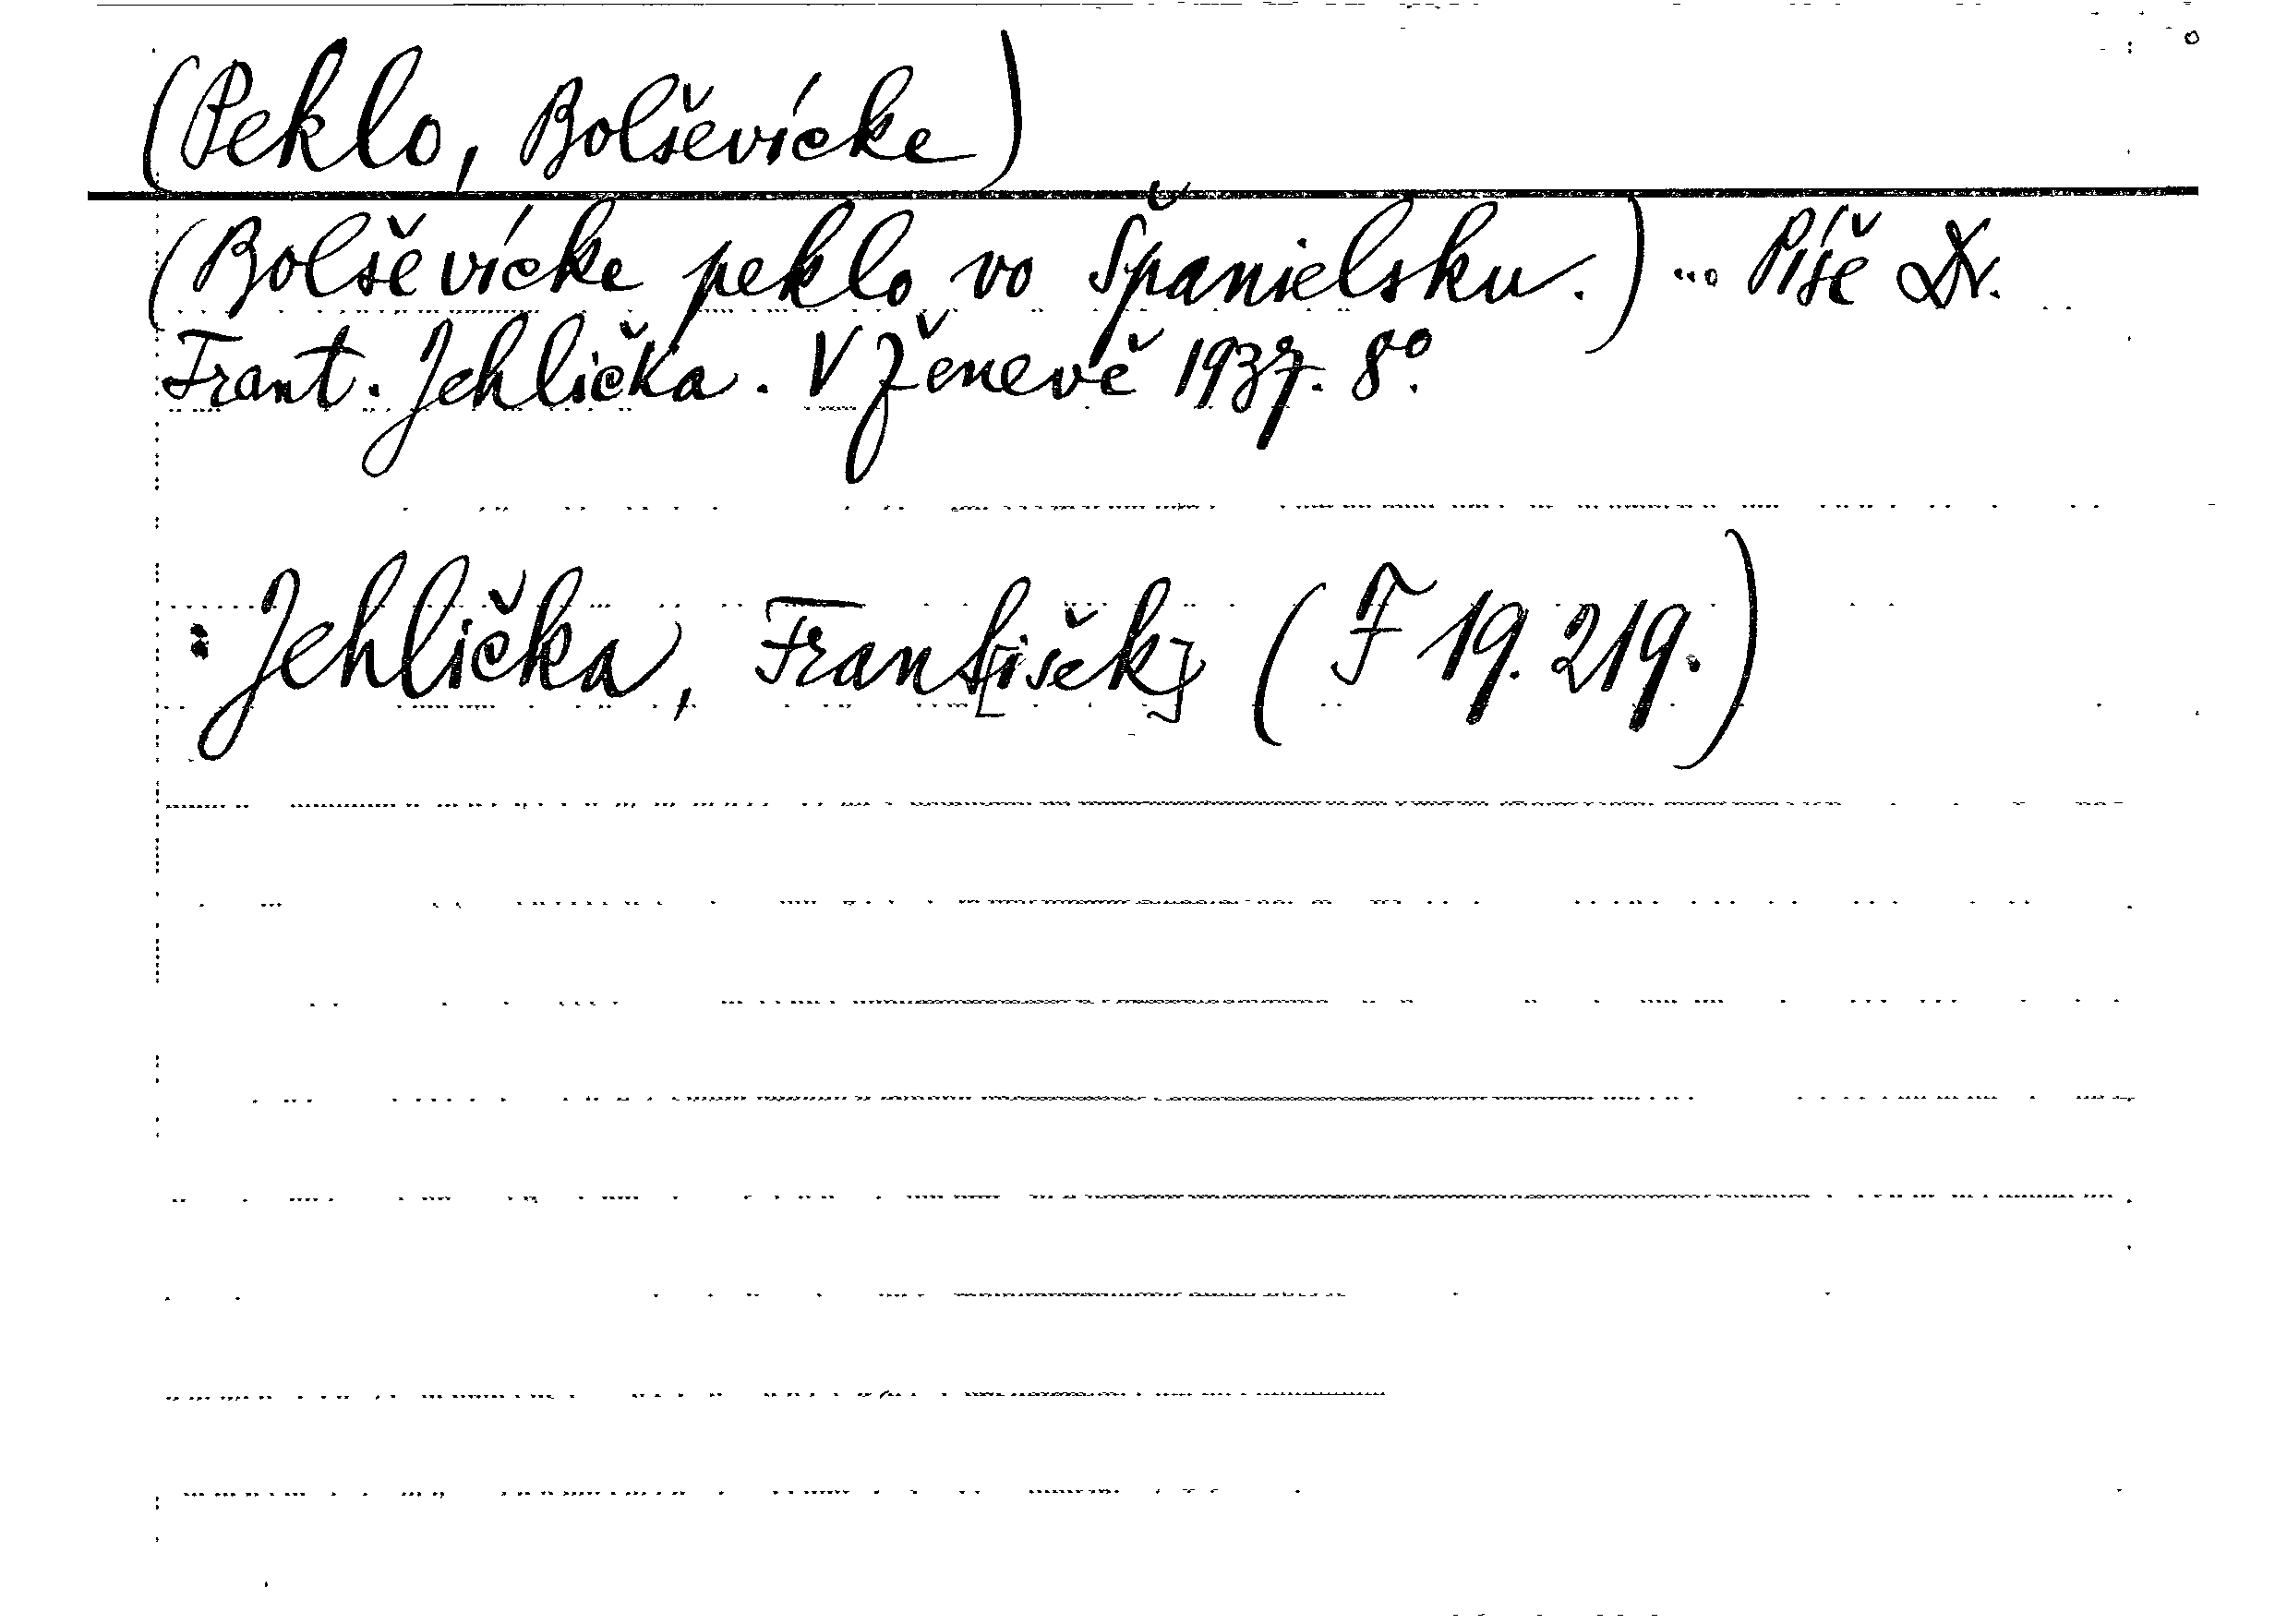 (Peklo, Bolševícke)
(Bolševícke peklo vo Španielsku.) ... Píše Dr.
Frant. Jehlička. V Ženevě 1937. 8°.
: Jehlička, Frant[išek] (F 19. 219.)